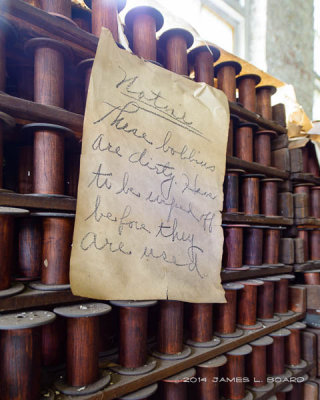 Notice
These bobbins
are dirty. Have
to be wiped off
before they
are used
2014 JAMES L. BOARD